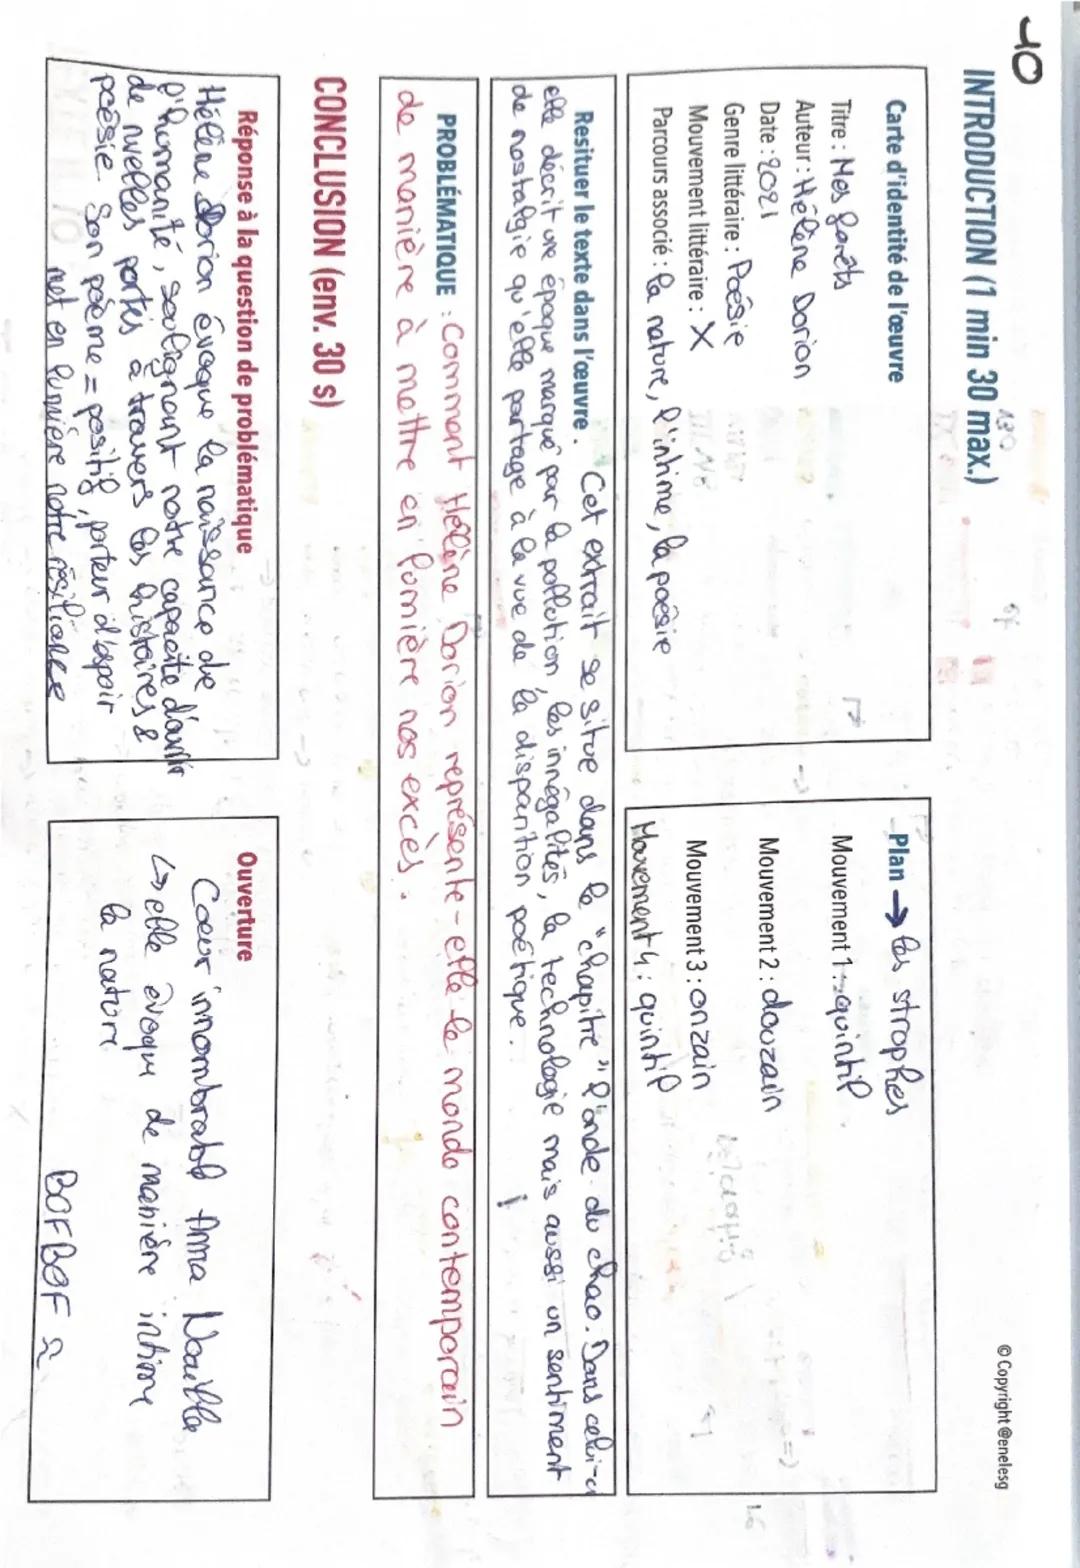 10
INTRODUCTION (1 min 30 max.)
© Copyright @enelesg
Carte d'identité de l'œuvre
Titre : Mes forêts
Auteur : Hélène Dorion
Date : 2021
Genre littéraire : Poésie
Mouvement littéraire : X
Parcours associé : la nature, l'intime, la poésie
Plan → les strophes
Mouvement 1 : quintil
Mouvement 2 : douzain
Mouvement 3 : onzain
Mouvement 4 : quintil
Resituer le texte dans l'œuvre. Cet extrait se situe dans le "chapitre" l'onde du chao. Dans celui-ci
elle décrit une époque marqué par la pollution, les innégalités, la technologie mais aussi un sentiment
de nostalgie qu'elle partage à la vue de la disparition poétique.
PROBLÉMATIQUE : Comment Hélène Dorion représente-elle le monde contemporain
de manière à mettre en lumière nos excès.
CONCLUSION (env. 30 s)
Réponse à la question de problématique
Hélène Dorion évoque la naissance de
l'humanité, soulignant notre capacité d'ouvrir
de nvelles portes à travers les histoires &
poésie. Son poème = positif, porteur d'espoir
met en lumière notre résilience
Ouverture
Cœur innombrable Anna Noailles
↳ elle évoque de manière intime
la nature
BOFBOF